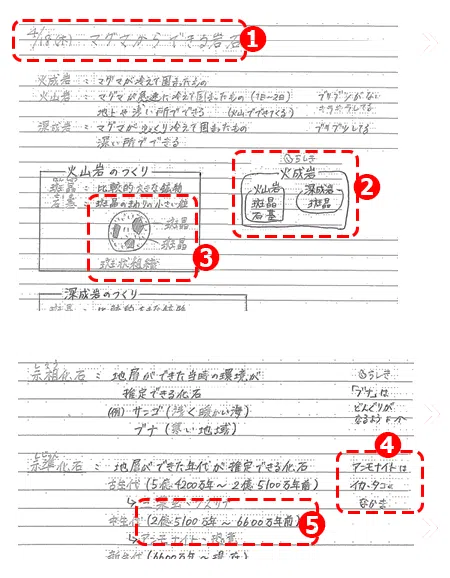 4/18(木) マグマからできる岩石
1
火成岩：マグマが冷えて固まったもの
火山岩：マグマが急速に冷えて固まったもの（1日～2日）
地上や浅い所でできる（山でできてくる）
ブツブツがない
キラキラしてる
深成岩：マグマがゆっくり冷えて固まったもの
深い所でできる
ブツブツしてる
火山岩のつくり
斑晶：比較的大きな鉱物
石基：斑晶の周りの小さい粒
斑晶
斑晶
斑状組織
3
火成岩
火山岩
斑晶
石基
深成岩
斑晶
2
深成岩のつくり
示相化石：地層ができた当時の環境が
推定できる化石
(例) サンゴ（浅く暖かい海）
ブナ（寒い地域）
「ブナ」は
どんぐりが
示準化石：地層ができた年代が推定できる化石
古生代（5億4200万年～2億5100万年前）
中生代（2億5100万年～6600万年前）
↳アンモナイト・恐竜
新生代（6600万年～現在）
4
アンモナイトは
イカ・タコの
なかま
5